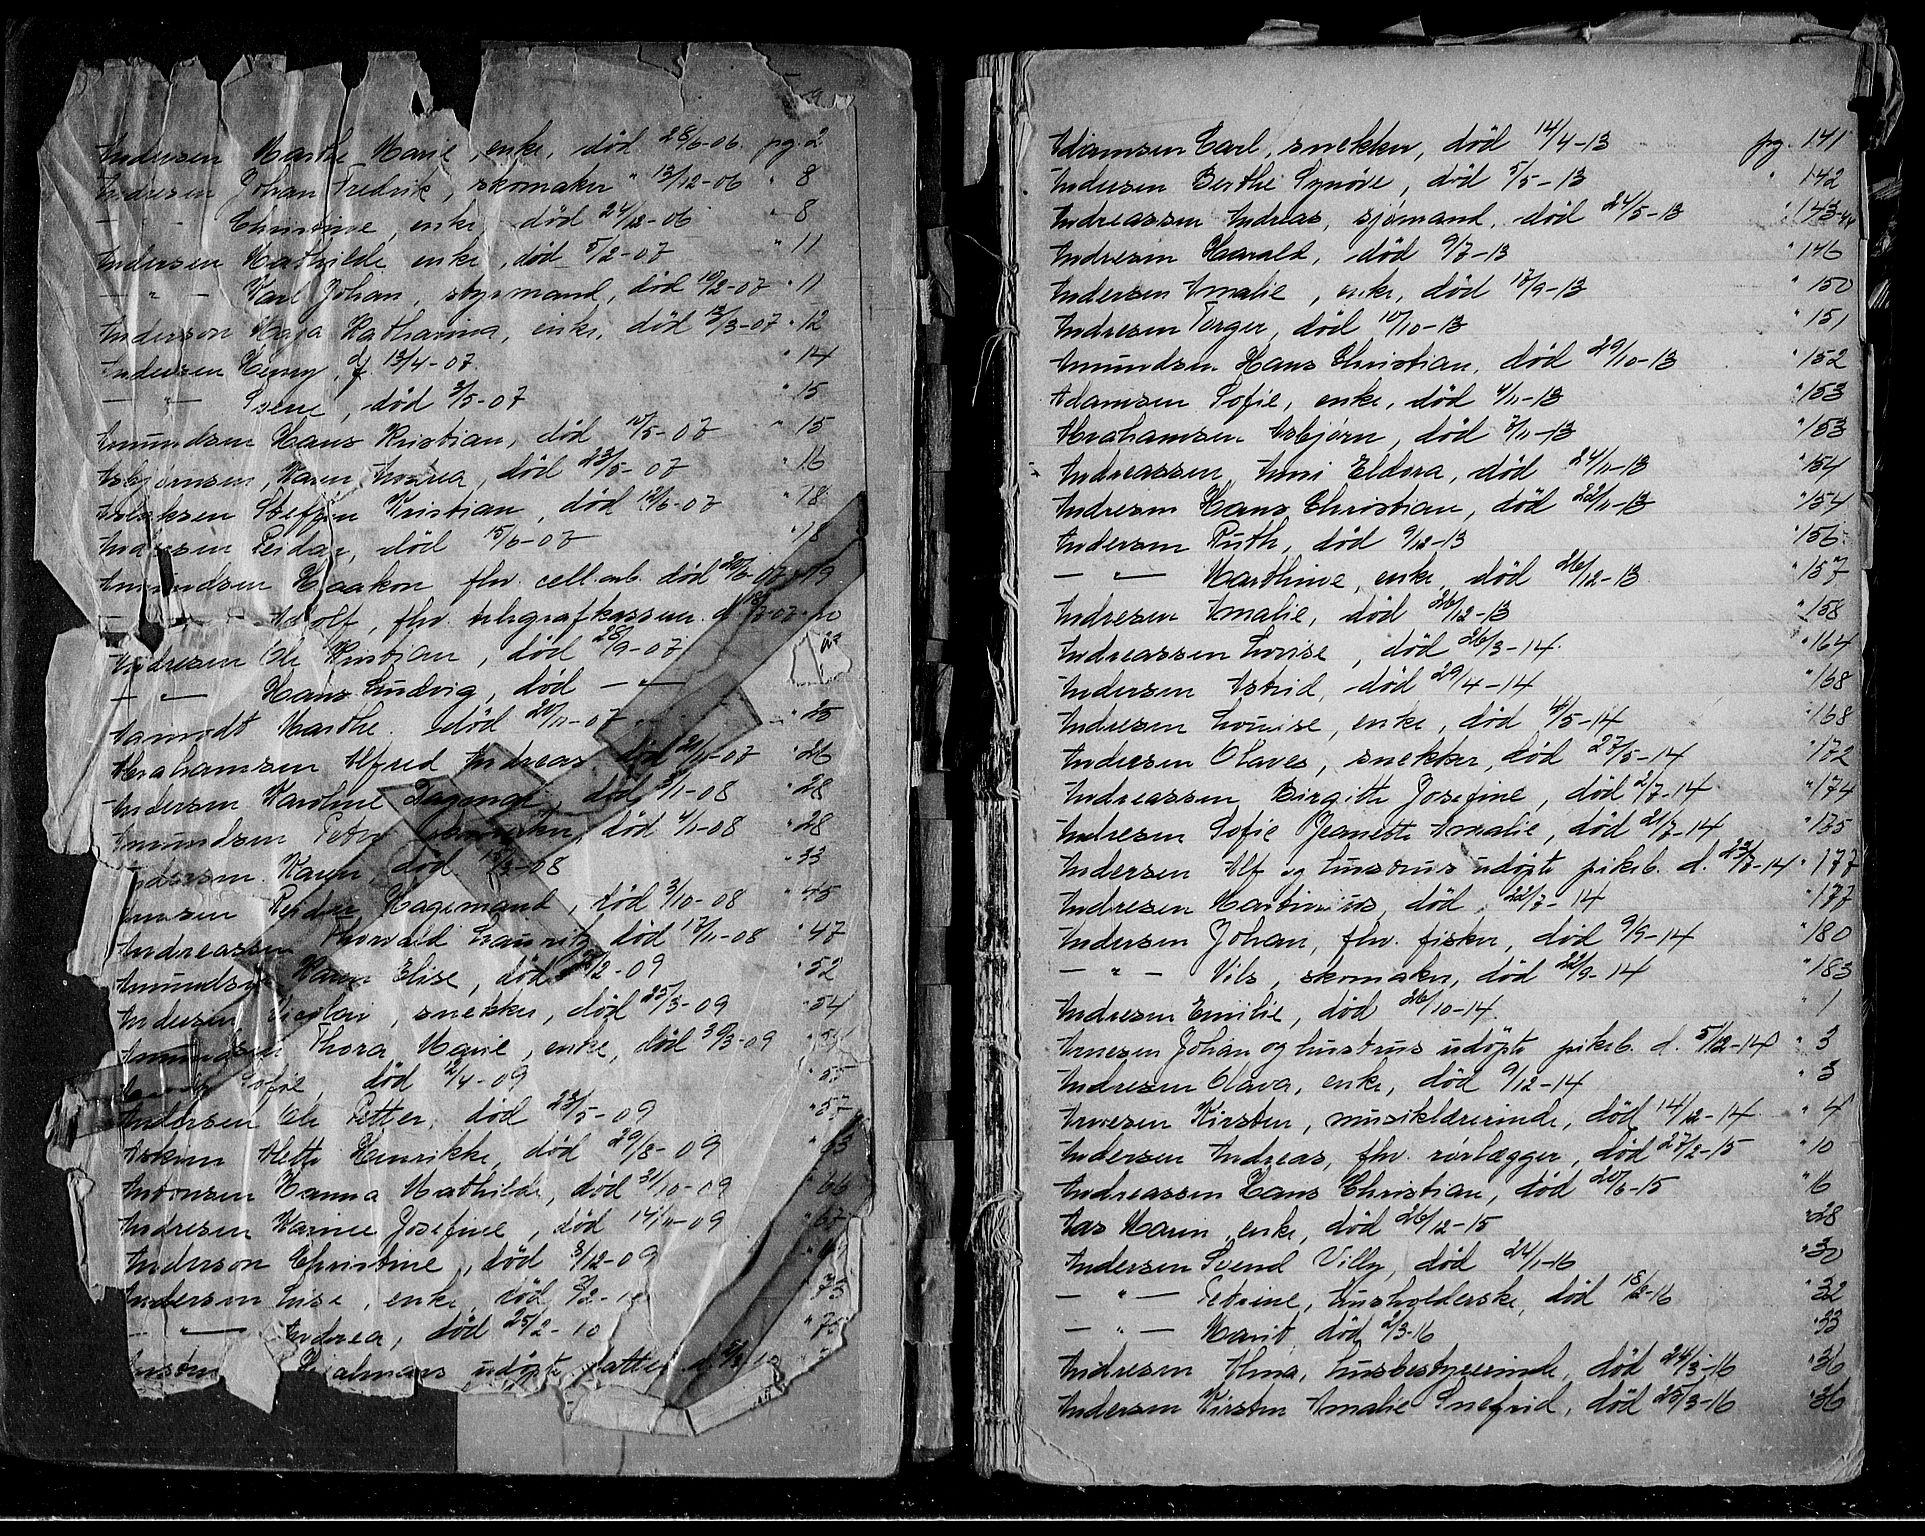 Andersen Marthe Marie, enke, död 28/6-06. pg. 2
Andresen Johan Fredrik, skomaker " 13/12-06 " 8
— " — Christine, enke, död 24/12-06 " 8
Andersen Mathilde enke, död 5/2-07 " 11
— " — Karl Johan, styrmand, död 19/2-07 " 11
Anderson Maja Katharina, enke, död 13/3-07 " 12
Andersen Henny, d. 13/4-07. " 14
— " — Signe, död 3/5-07 " 15
Amundsen Hans Kristian, död 10/5-07 " 15
Asbjørnsen, Karen Andrea, död 23/5-07 " 16
Aslaksen Steffen Kristian, död 12/6-07 " 18
Andresen Peder, död 15/6-07 " 18
Amundsen Haakon fhv. cell.arb. död 20/6-07 " 19
— Adolf, fhv. telegrafkasserer d. 18/7-07 " 20
Andresen Ole Kristian, död 28/9-07
— " — Hans Ludvig, död — " —
Aamodt Marthe. död 20/11-07 " 25
Abrahamsen Alfred Andreas död 21/11-07 " 26
Andersen Karoline Dagmar, död 3/1-08 " 28
Amundsen Petra död 4/1-08 " 28
Andersen Karen, död 13/3-08 " 33
Reidar Hagemand, död 3/10-08 " 45
Andreassen Thorvald Lauritz, död 17/11-08 " 47
Amundsen Karen Elise, död /2-09 " 52
Andersen snekker, död 25/3-09 " 54
Amundsen Thora Marie, enke, död 30/3-09
Sofie död 2/4-09 " 55
Andersen Ole Petter, död 23/5-09 " 57
Askim Alette Henrikke, död 29/8-09 " 63
Antonsen Hanna Mathilde, död 31/10-09 " 66
Andresen Karine Josefine, död 14/11-09 " 67
Anderson Christine, död 3/12-09
Andersen Lise, enke, död /2-10 " 75
— " — Andrea, död 25/2-10
Hjalmars udöpte datter d.
Adamsen Carl, snekker, död 14/4-13 pg. 141
Andersen Berthe Synöve, död 5/5-13 " 142
Andreassen Andreas, sjömand, död 24/5-13 " 143-44
Andresen Harald, död 9/7-13 " 146
Andersen Amalie, enke, död 17/9-13 " 150
Andresen Torger, död 10/10-13 " 151
Amundsen Hans Christian, död 29/10-13 " 152
Adamsen Sofie, enke, död 4/11-13 " 153
Abrahamsen Asbjørn, död 7/11-13 " 153
Andreassen Anni Eldora, död 24/11-13 " 154
Andresen Hans Christian, död 22/11-13 " 154
Andersen Ruth, död 9/12-13 " 156
— " — Marthine, enke, död 26/12-13 " 157
Andresen Amalie, död 26/12-13 " 158
Andreassen Louise, död 26/3-14. " 164
Andersen Astrid, död 29/4-14 " 168
Andresen Louise, enke, död 4/5-14 " 168
Andersen Olaves, snekker, död 27/5-14 " 172
Andreassen Birgitte Josefine, död 2/7-14 " 174
Andresen Sofie Jeanette Amalie, död 21/7-14 " 175
Andersen Alf og hustrus udöpte pikeb. d. 23/7-14 " 177
Andresen Martinius, död 22/7-14 " 177
Andersen Johan, fhv. fisker, död 9/9-14 " 180
— " — Nils, skomaker, död 22/9-14 " 183
Andresen Emilie, död 26/10-14. " 1
Arnesen Johan og hustrus udöpte pikeb. d. 5/12-14 " 3
Andresen Olava, enke, död 9/12-14 " 3
Arnesen Kirsten, musiklærerinde, död 14/12-14 " 4
Andersen Andreas, fhv. rörlægger, död 27/2-15 " 10
Andreassen Hans Christian, död 20/6-15 " 16
Aas Maren enke, död 26/12-15 " 28
Andersen Svend Villy, död 24/1-16 " 30
— " — Petrine, husholderske, död 18/2-16 " 32
— " — Marit, död 2/3-16 " 33
Andresen Alma, husbestyrerinde, död 24/3-16 " 36
Andersen Kirsten Amalie Snefrid, död 25/3-16 " 36